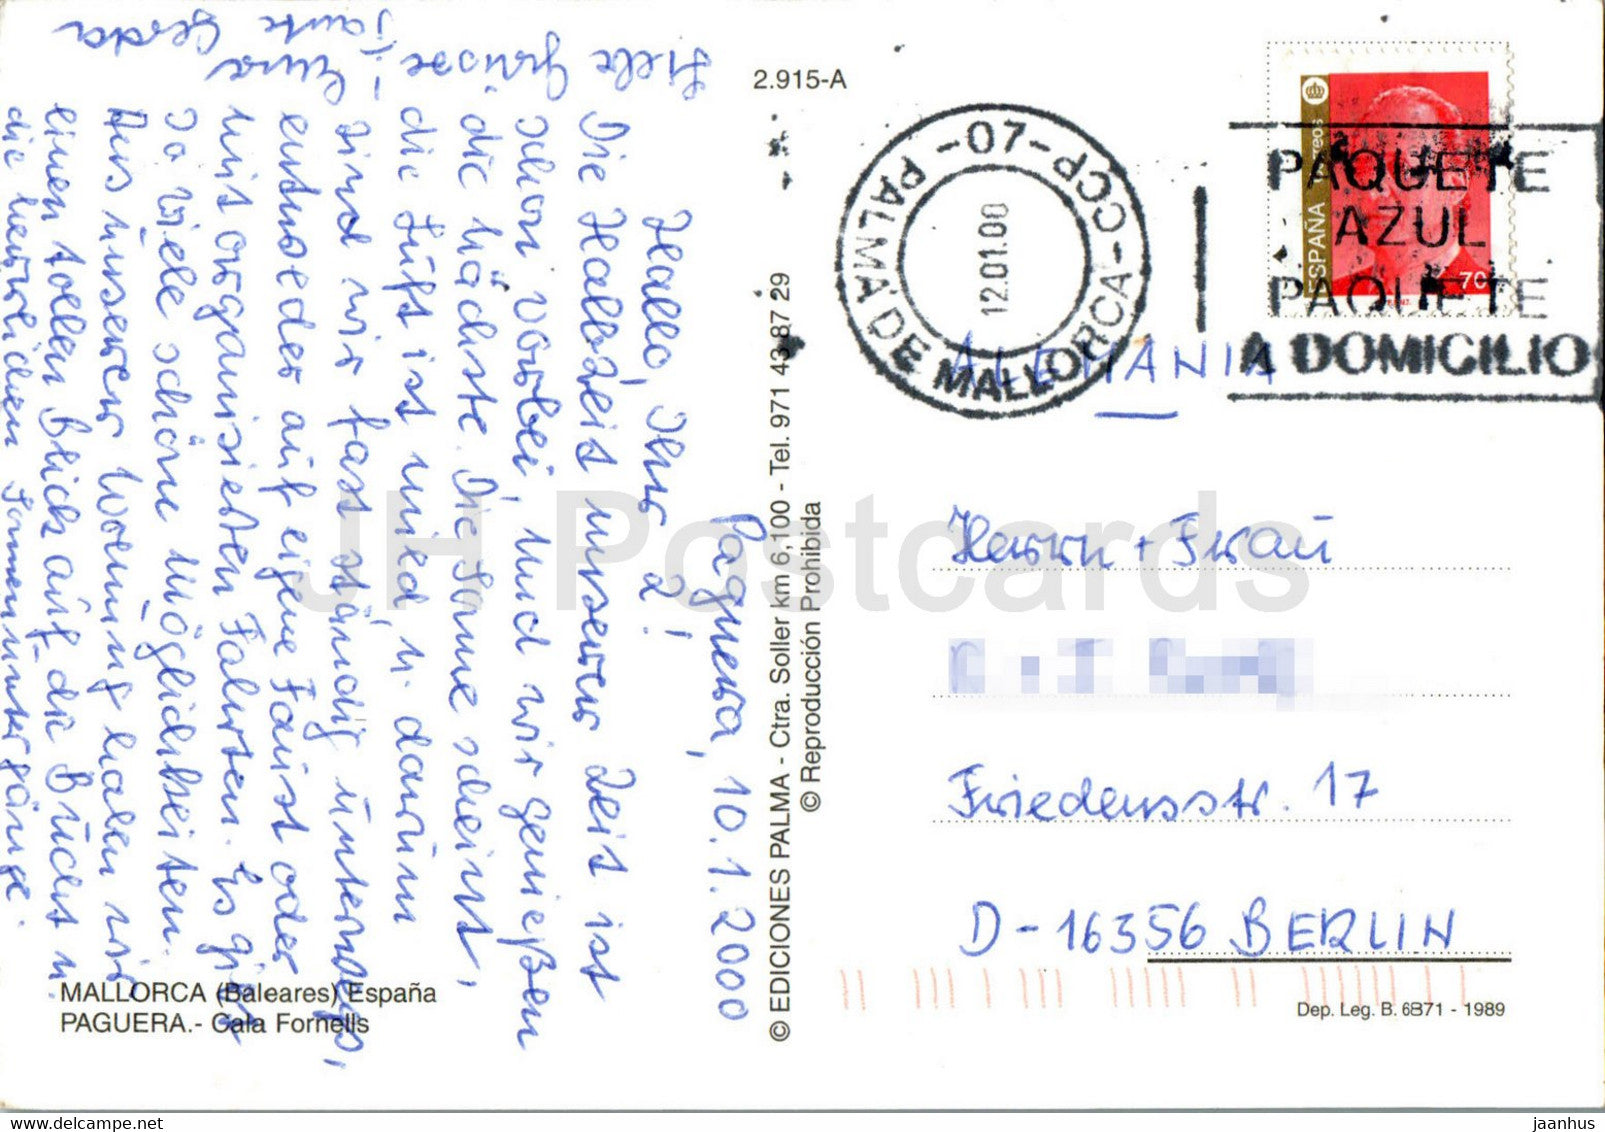 Paguera, 10.1.2000
Hallo, Ihr 2!
Die Halbzeit unserer Zeit ist
schon vorbei, und wir genießen
die nächste. Die Sonne scheint,
die Luft ist mild, u. darum
sind wir fast ständig unterwegs,
entweder auf eigene Faust oder
mit organisierten Fahrten. Es gibt
so viele schöne Möglichkeiten.
Aus unserer Wohnung haben wir
einen tollen Blick auf die Bucht u.
die herrlichen Sonnenuntergänge.
Liebe Grüsse
Eure
Tante Gerda
MALLORCA (Baleares) España
PAGUERA.- Cala Fornells
© EDICIONES PALMA - Ctra. Soller km 6,100 - Tel. 971 43 87 29
© Reproducción Prohibida
2.915-A
07 - CCP - PALMA DE MALLORCA
12.01.00
PAQUETE
AZUL
PAQUETE
A DOMICILIO
ESPAÑA
ALEMANIA
Herrn + Frau
Friedensstr. 17
D-16356 BERLIN
Dep. Leg. B. 6871 - 1989
JH Postcards
jaanhus
www.delcampe.net